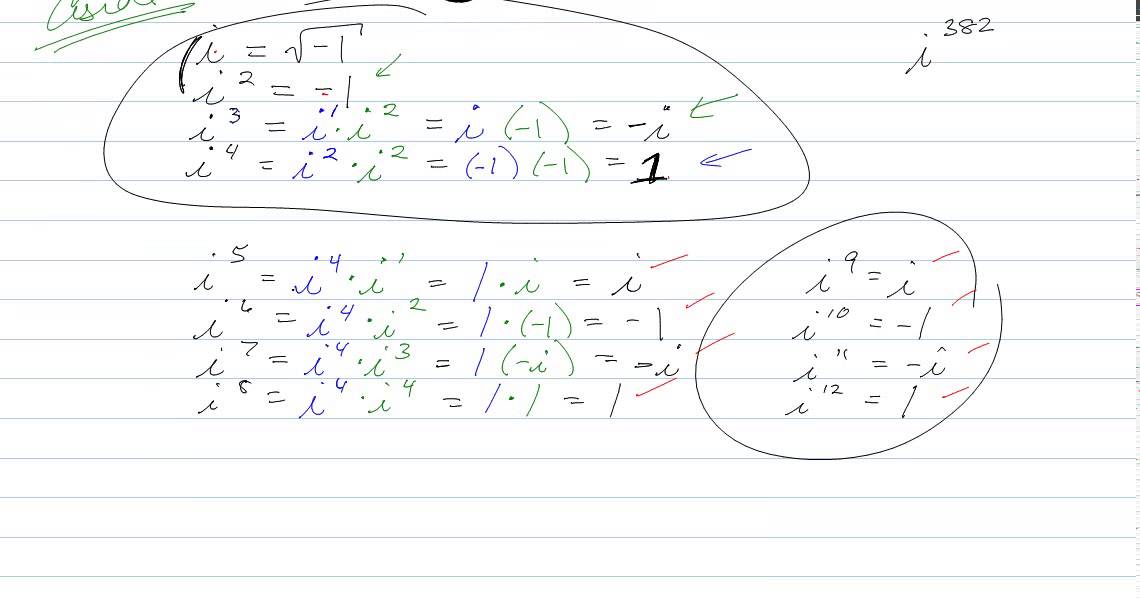 Aside
i = √-1
i² = -1
i³ = i¹·i² = i(-1) = -i
i⁴ = i²·i² = (-1)(-1) = 1
i³⁸²
i⁵ = i⁴·i¹ = 1·i = i
i⁶ = i⁴·i² = 1·(-1) = -1
i⁷ = i⁴·i³ = 1(-i) = -i
i⁸ = i⁴·i⁴ = 1·1 = 1
i⁹ = i
i¹⁰ = -1
i¹¹ = -i
i¹² = 1